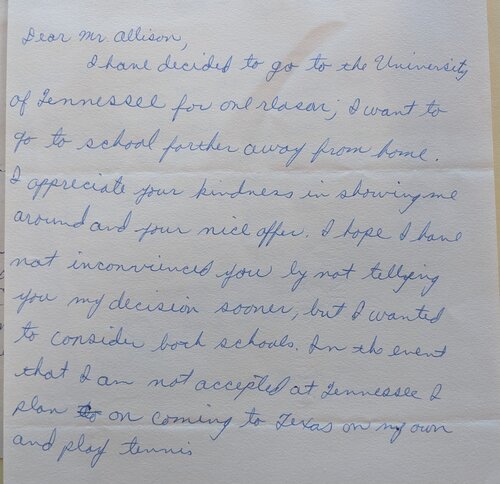 Dear Mr. Allison,
I have decided to go to the University
of Tennessee for one reason; I want to
go to school farther away from home.
I appreciate your kindness in showing me
around and your nice offer. I hope I have
not inconvienced you by not tellying
you my decision sooner, but I wanted
to consider both schools. In the event
that I am not accepted at Tennessee I
plan to on coming to Texas on my own
and play tennis